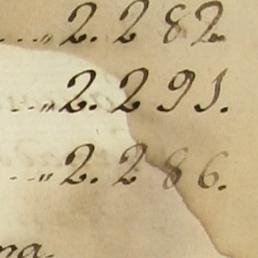 ...„2.282
...„2.291.
...„2.286.